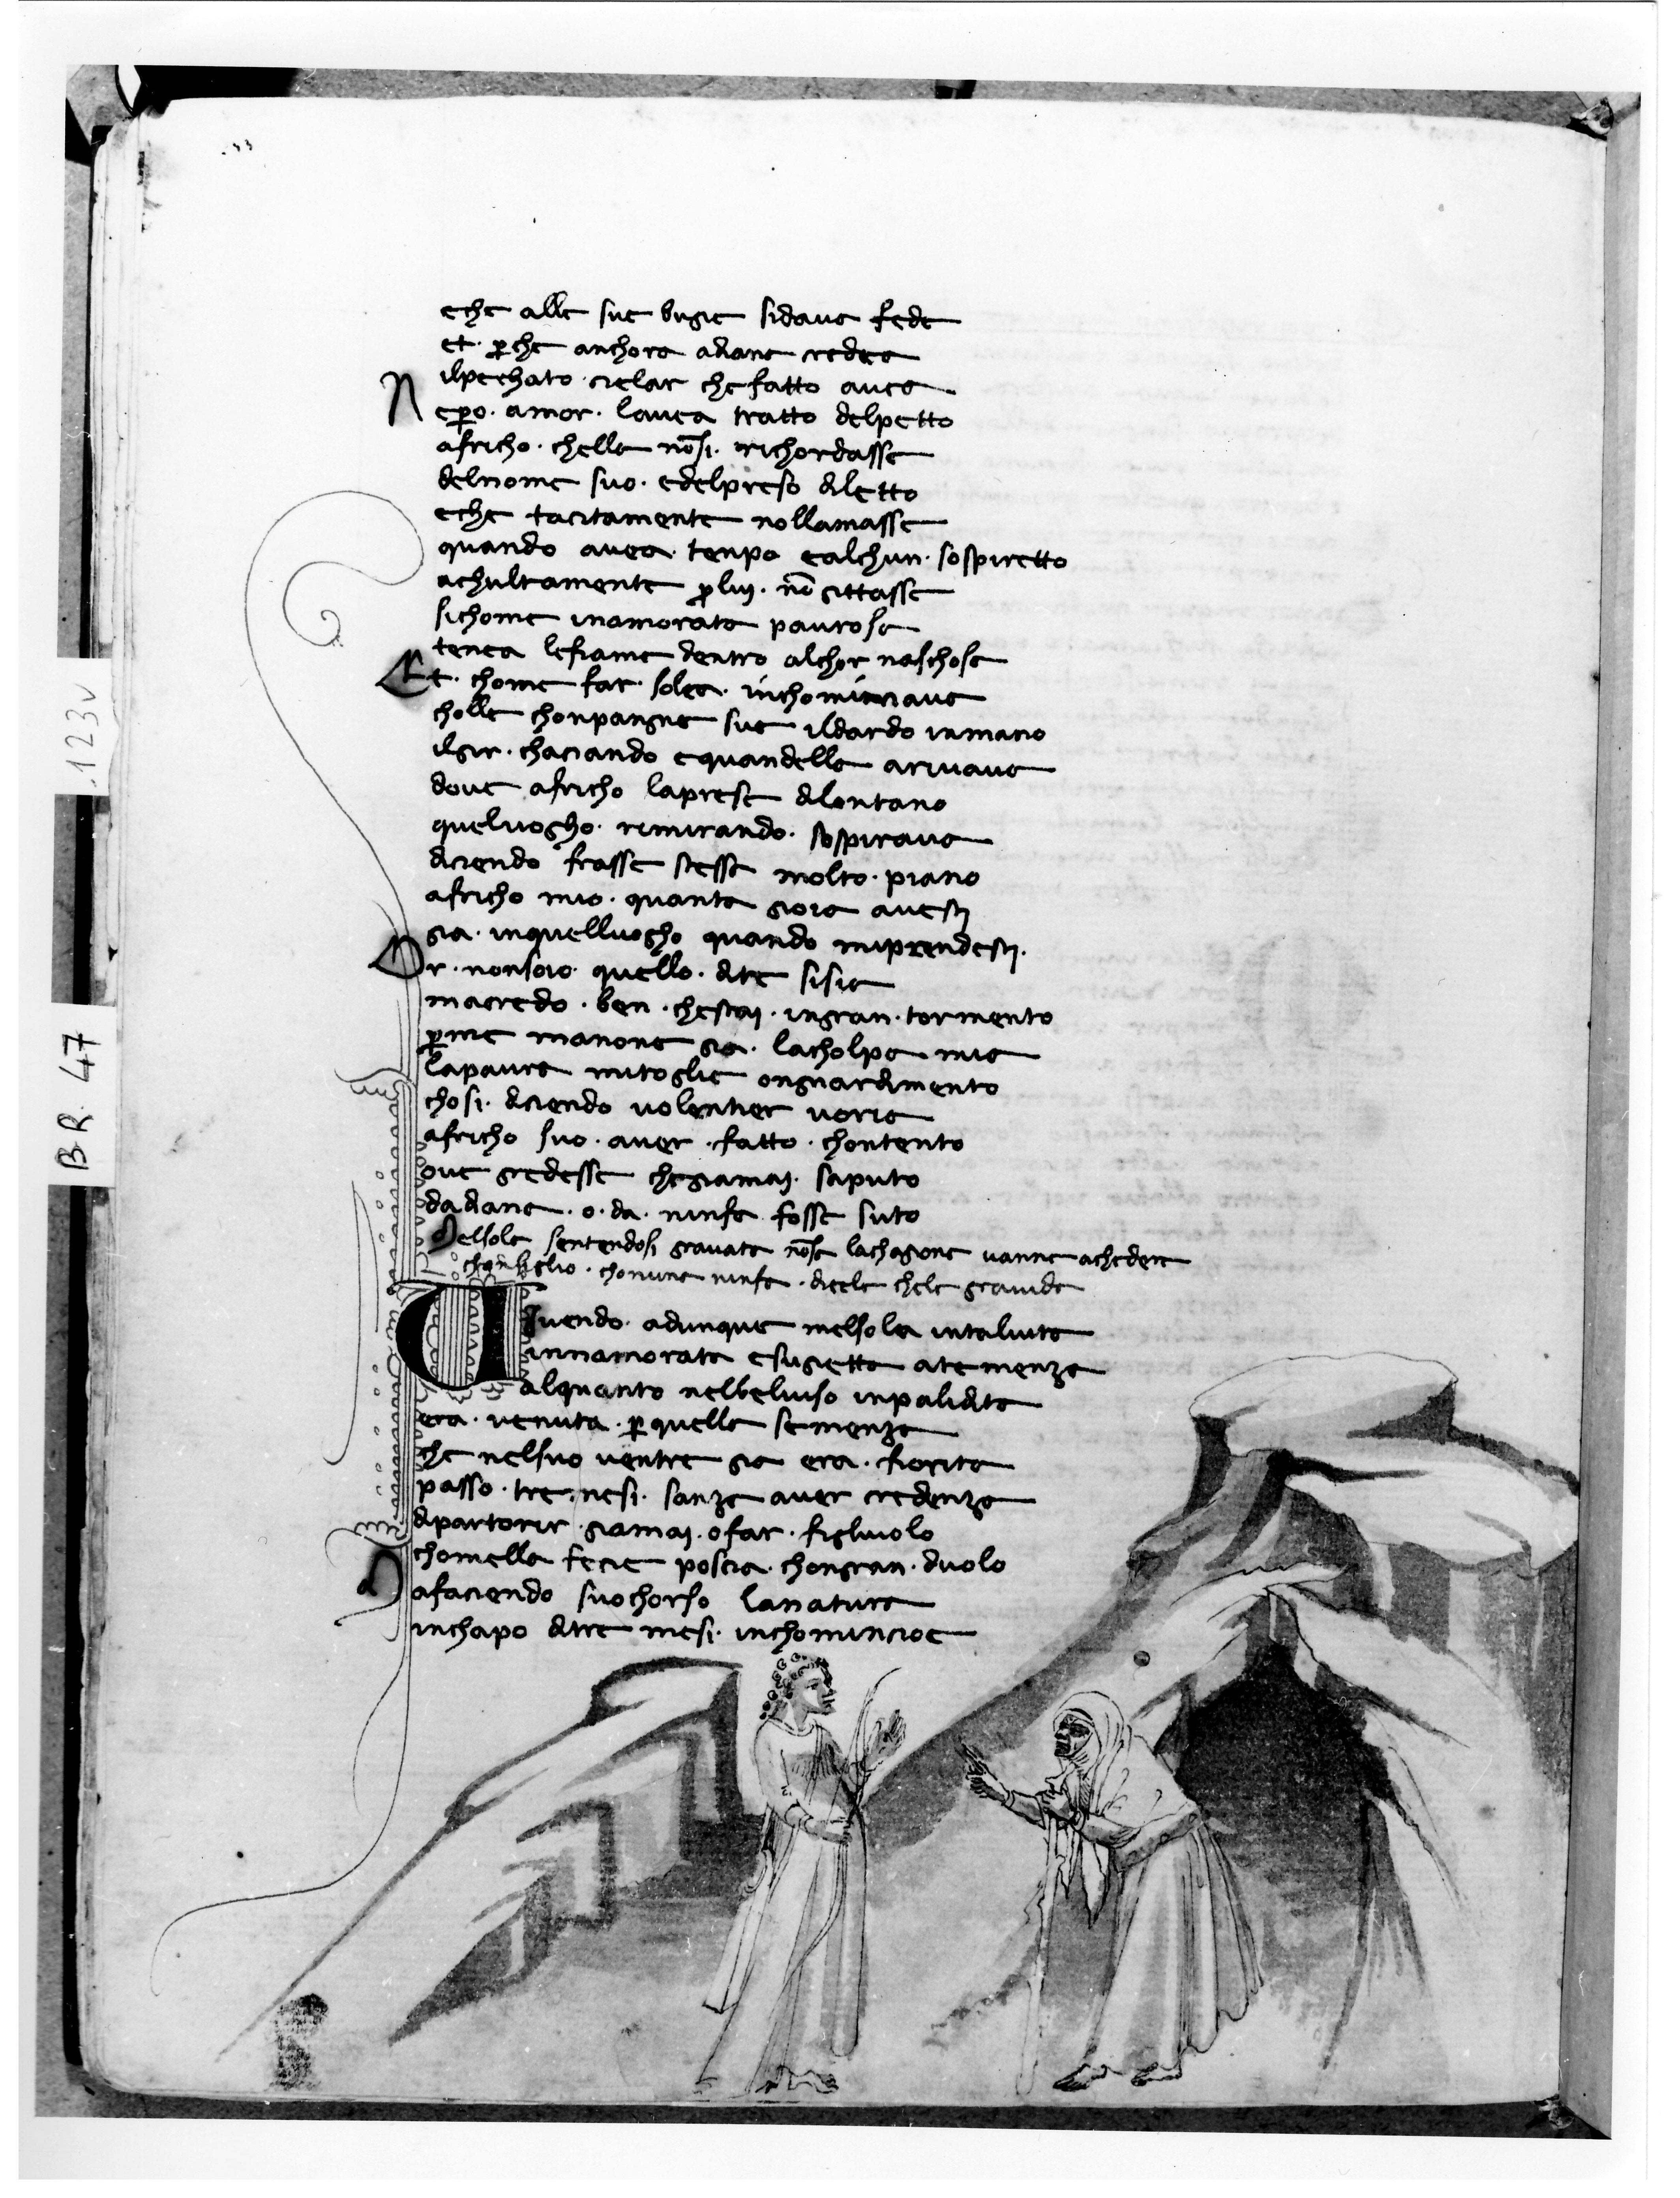 eche alle sue bugie sidava fede
et. p̱che anchora adiana credea
ilpechato cielar che fatto avea
Nep̱o. amor. lavea tratto delpetto
africho. chella nō si. richordasse
delnome suo. edelpreso diletto
eche tacitamente nollamasse
quando avea. tenpo ealchun. sospiretto
achultamente p̱ luj. nō gittasse
sichome inamorata paurosa
tenea lefiame dentro alchor naschose
Et. chome far. solea. inchominciava
cholle chonpangne sue ildardo inmano
ilgir. chaciando equandella arivava
dove africho laprese dilontano
queluogho. rimirando. sospirava
diciendo frasse stessa molto. piano
africho mio. quanta gioia avestj
gia. inquelluogho quando miprendestj.
Or. nonsoio. quello. dite sisia
macredo. ben. chestaj. ingran. tormento
p̱ me manone gia. lacholpa mia
lapaura mitoglie ongnardimento
chosi. diciendo volentier voria
africho suo. aver. fatto. chontento
ove credesse chegiamaj. saputo
dadiana. o. da. ninfa fosse suto
Melsola sentendosi gravata nō sa lachagone vanne achedere
chonsiglio. chonuna ninfa. dicele chele gravida
Vivendo. adunque melsola intalvita
innamorata esugietta atemenza
alquanto nelbelviso inpalidita
era. venuta. p̱ quella semenza
che nelsuo ventre gia era. fiorita
passo. tre mesi. sanza aver credenza
dipartorir giamaj. ofar. figliuolo
chomella fecie poscia. chongran. duolo
Mafaciendo suo chorso lanatura
inchapo ditre mesi. inchomincioe
.123v
BR. 47